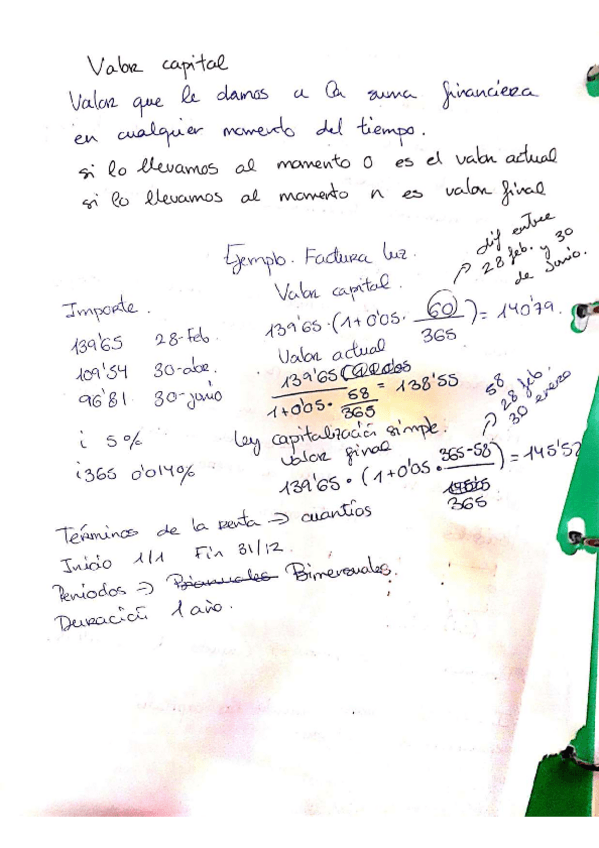 Valor capital
Valor que le damos a la suma financiera
en cualquier momento del tiempo.
si lo llevamos al momento 0 es el valor actual
si lo llevamos al momento n es valor final
Ejemplo. Factura luz.
dif entre
28 feb. y 30
de junio.
Importe.
139'65 28-Feb
109'54 30-abr.
96'81 30-junio
i 5%
i365 0'014%
Valor capital.
139'65·(1+0'05· 60/365)= 140'79.
Valor actual
139'65 / 1+0'05· 58/365 = 138'55
58
28 feb.
30 enero
Ley capitalización simple.
Valor final
139'65·(1+0'05· 365-58/365)=145'52
Términos de la renta → cuantías
Inicio 1/1 Fin 31/12.
Periodos → Bianuales Bimensuales.
Duración 1 año.